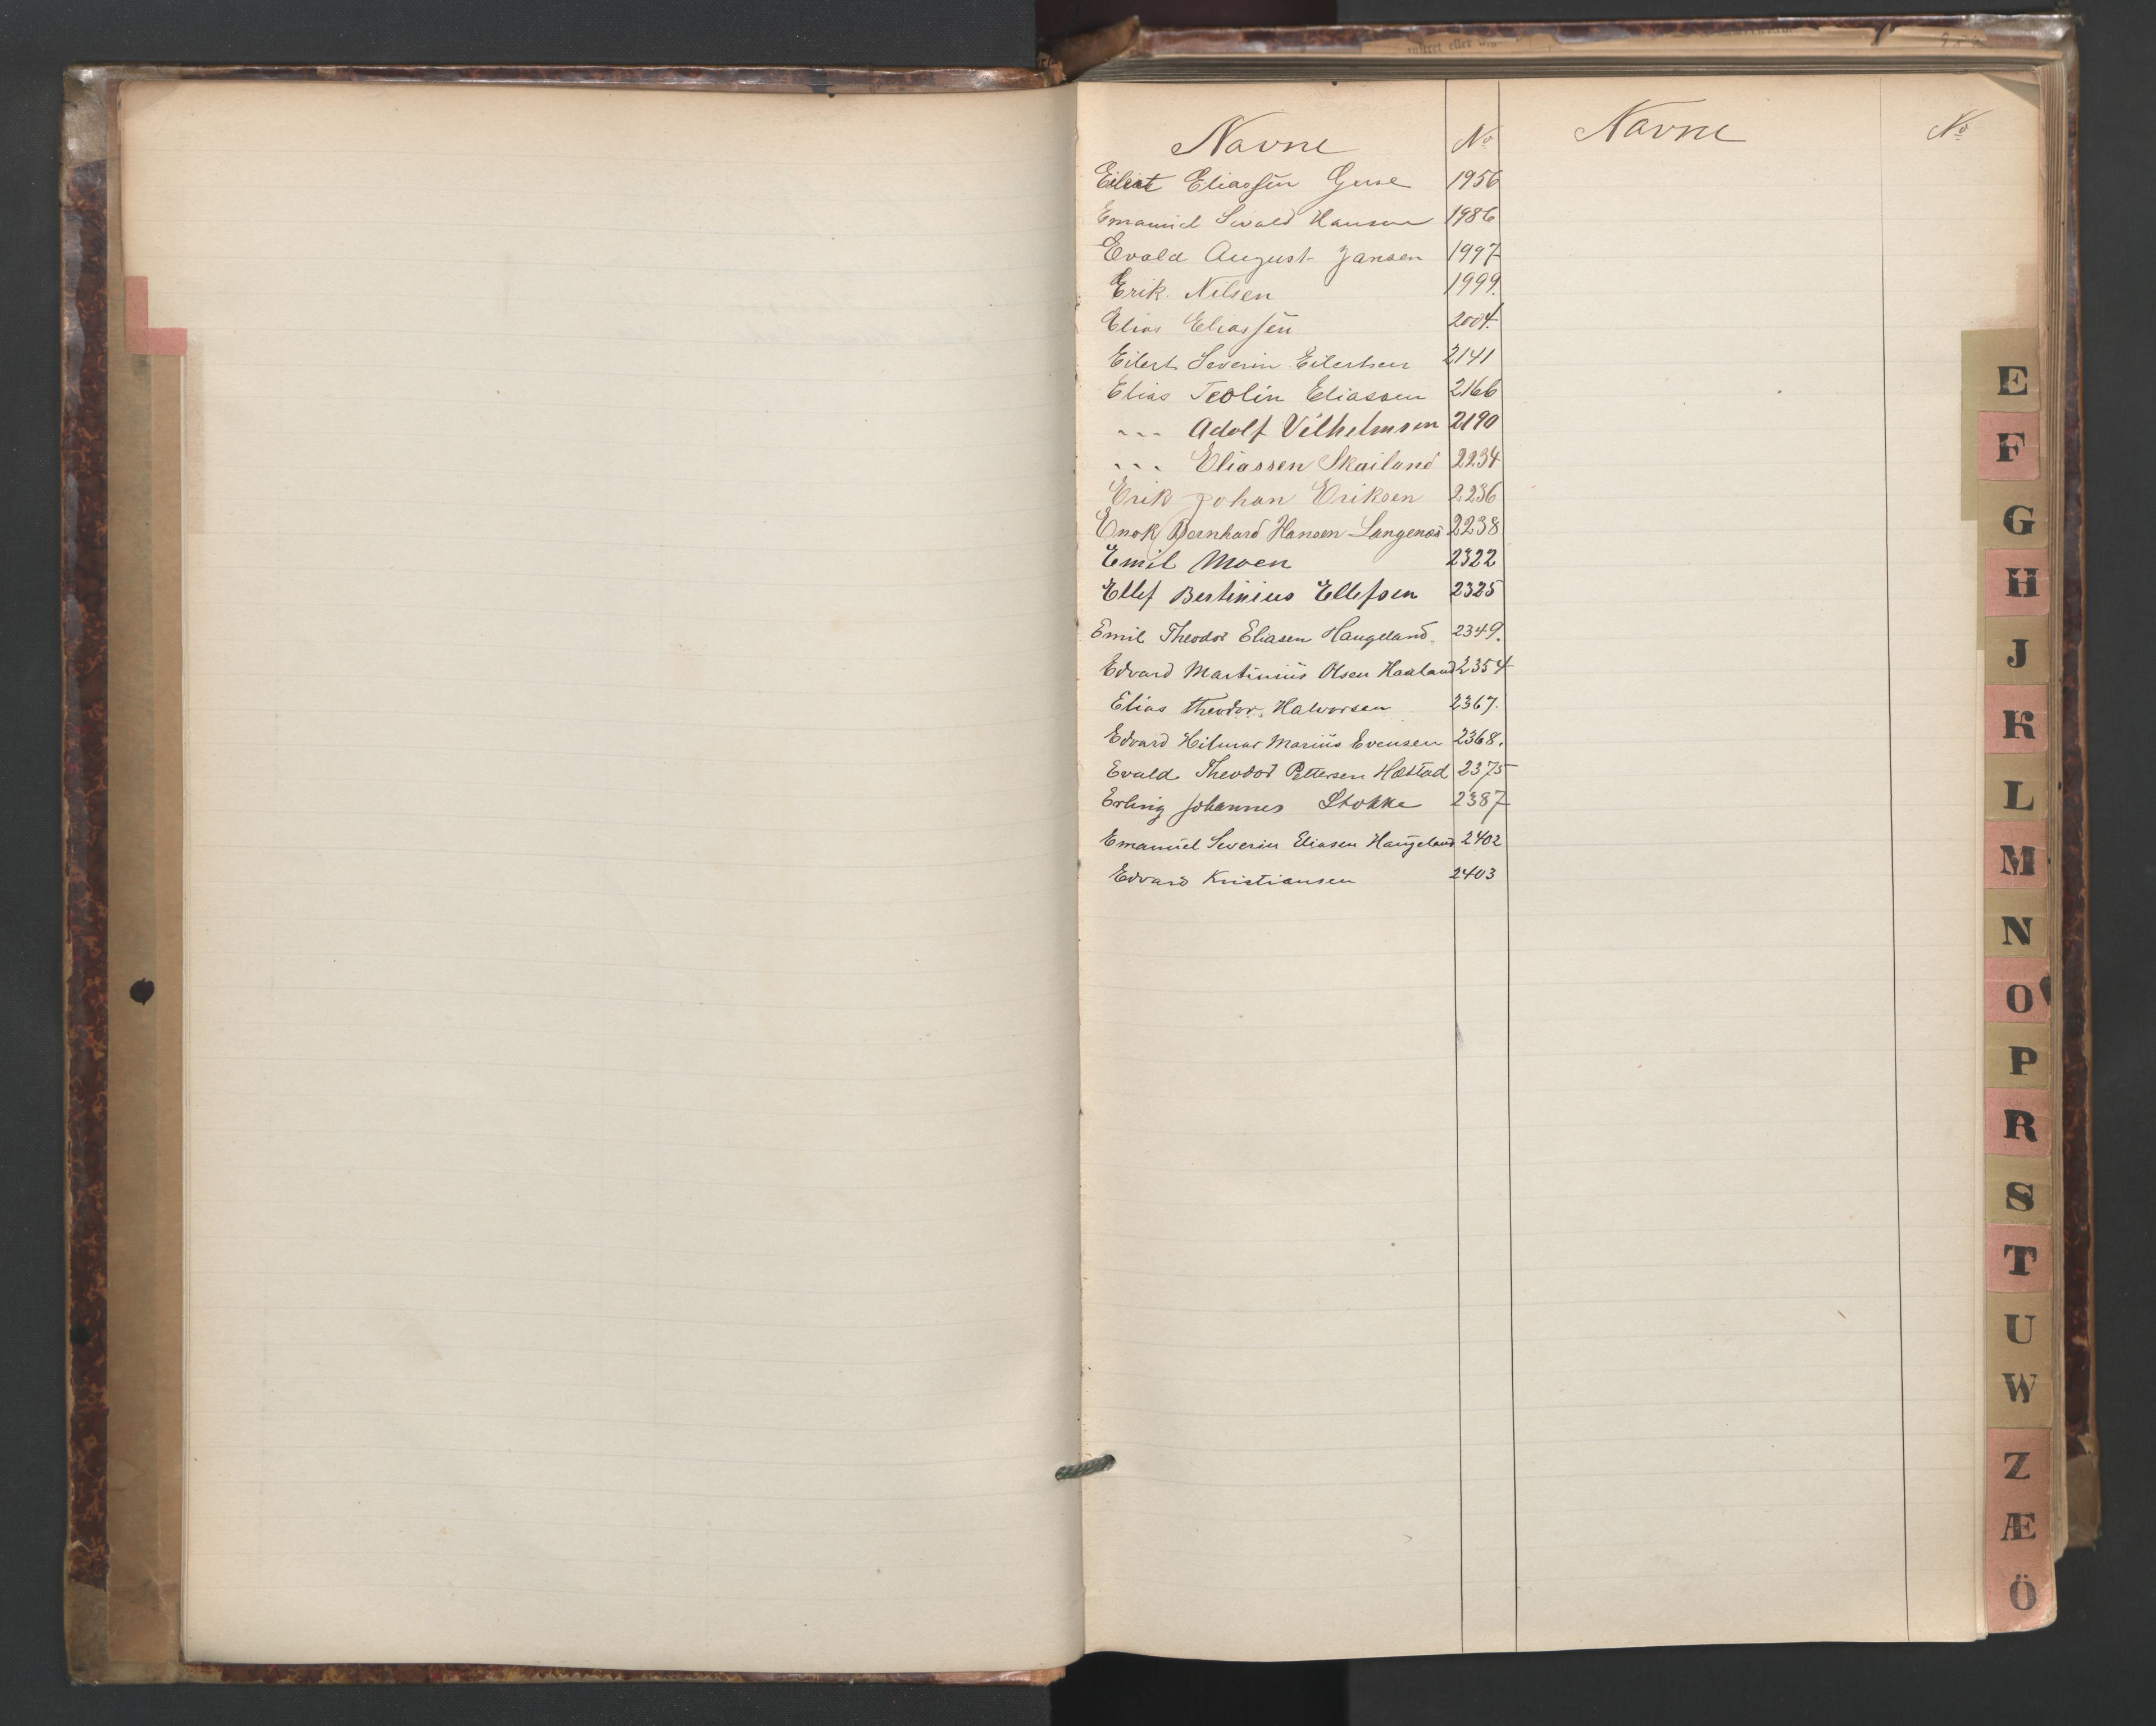 Navne No Navne No
Eilert Eliassen 1956
Emanuel Sivald Hansen 1986
Evald August Jansen 1997
Erik Nilsen 1999.
Elias Eliassen 2004.
Eilert Severin Eilertsen 2141
Elias Teolin Eliassen 2166
--- Adolf Vilhelmsen 2190
--- Eliassen Skailand 2234
Erik Johan Eriksen 2236
Enok Bernhard Hansen Langenæs 2238
Emil Moen 2322
Ellef Bertinius Ellefsen 2325
Emil Theodor Eliasen Haugeland. 2349.
Edvard Martinius Olsen Haaland 2354
Elias Theodor Halvorsen 2367.
Edvard Hilmar Marius Evensen 2368.
Evald Theodor Pettersen Hæstad 2375
Erling Johannes Stokke 2387
Emanuel Severin Eliasen Haugeland 2402
Edvard Kristiansen 2403
E
F
G
H
J
K
L
M
N
O
P
R
S
T
U
W
Z
Æ
Ö